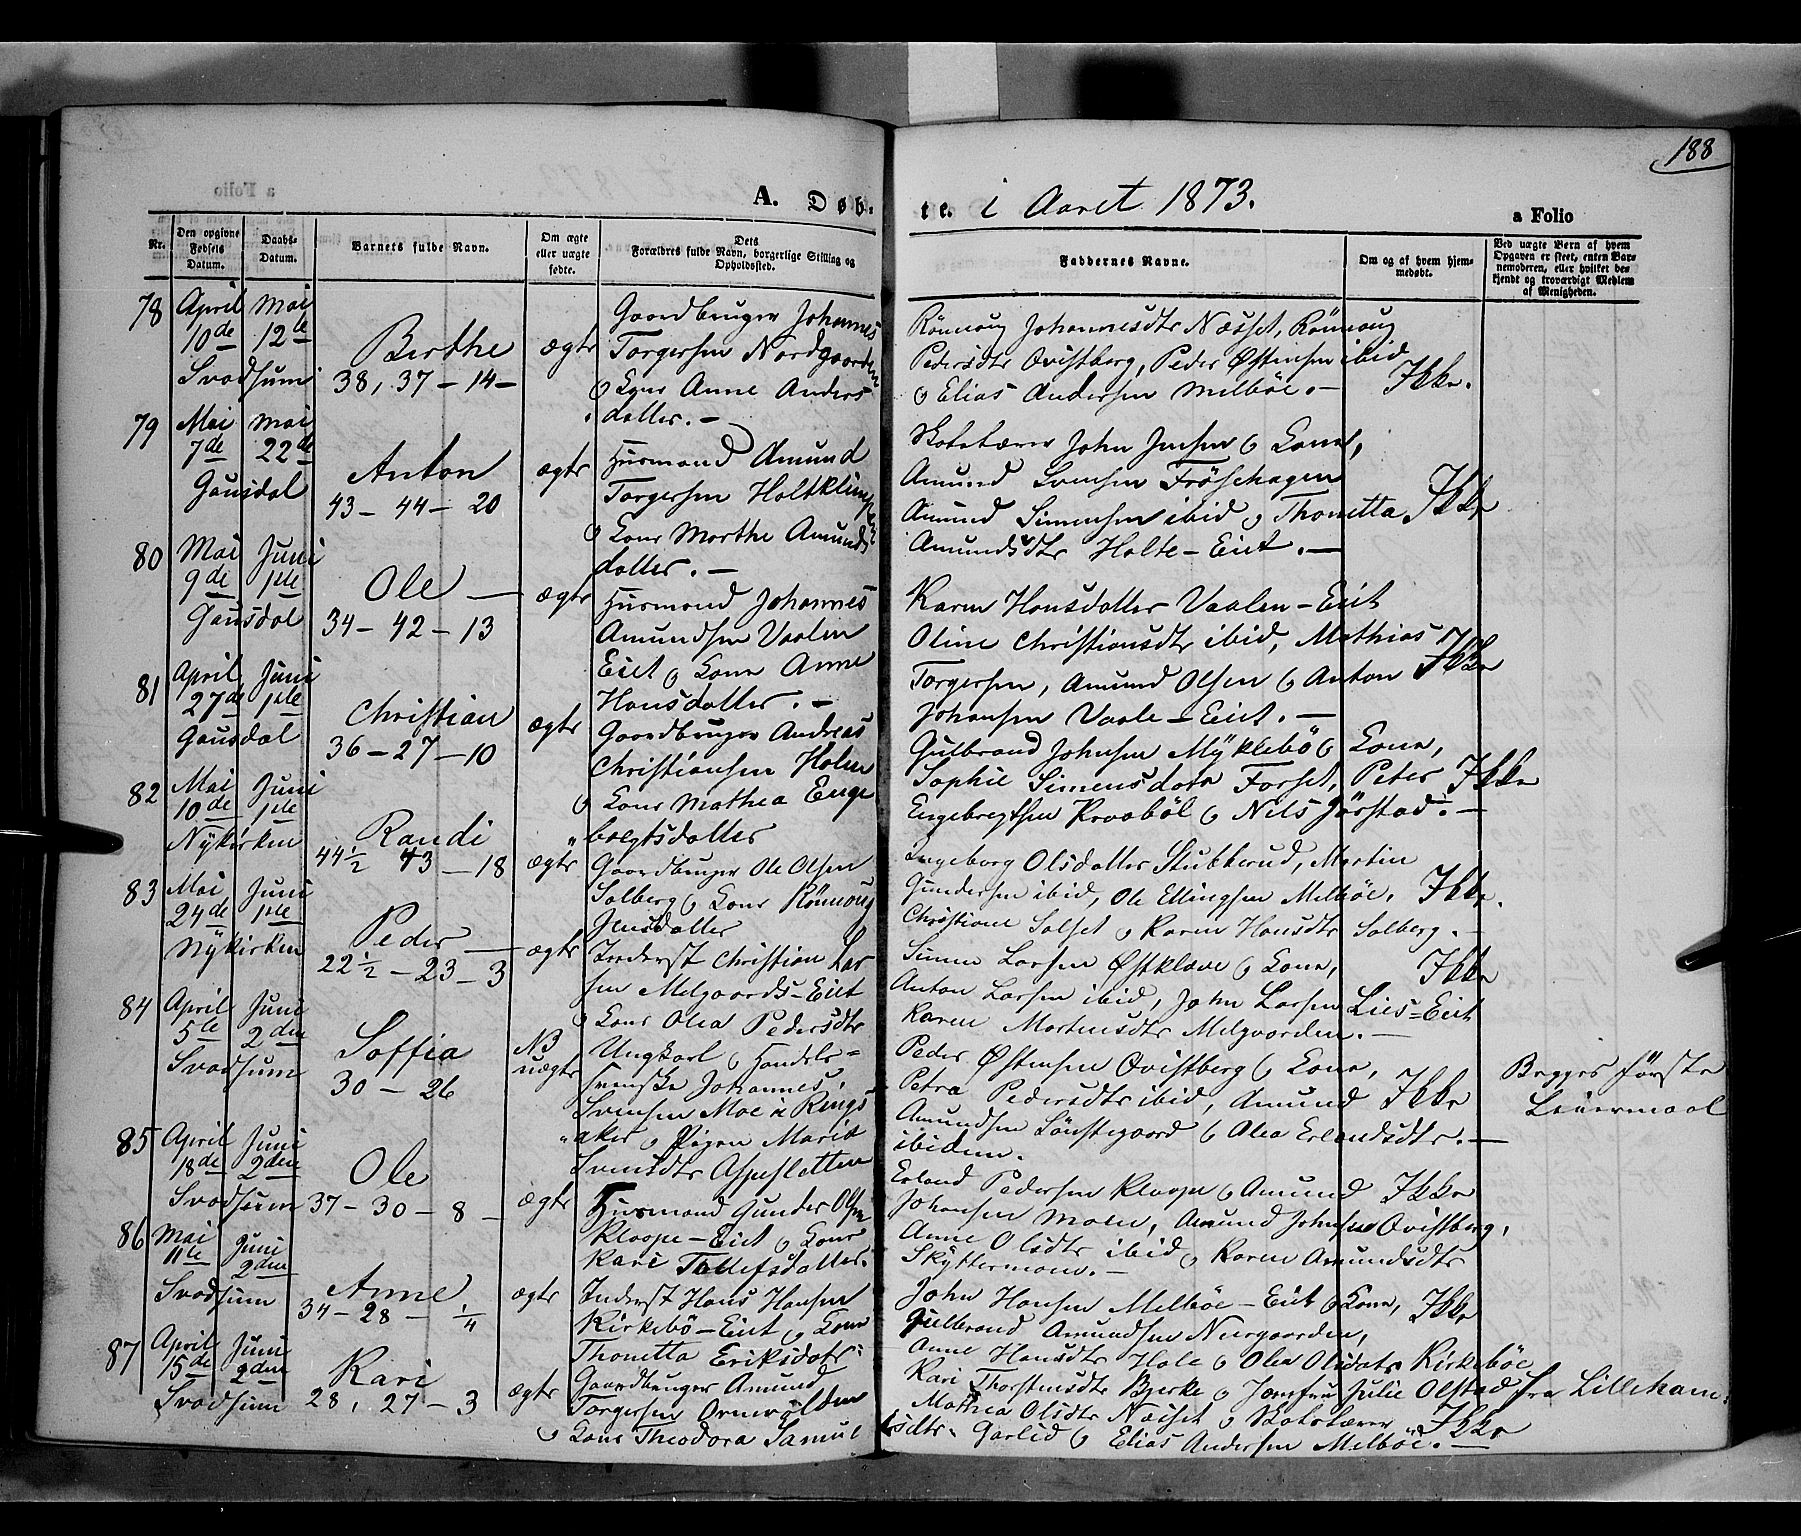 188
A. Døb-
te. i Aaret 1873.
a Folio
Nr.
Den opgivne Fødsels Datum.
Daabs-Datum.
Barnets fulde Navn.
Om ægte eller uægte fødte.
Dets Forældres fulde Navn, borgerlige Stilling og Opholdssted.
Faddernes Navne.
Om og af hvem hjemmedøbt.
Ved uægte Børn af hvem Opgaven er skeet, enten Barnemoderen, eller hvilket bekjendt og troværdigt Medlem af Menigheden.
78
April 10de
Mai 12te
Svadsum
Berthe
38, 37 - 14 -
ægte
Gaardbruger Johannes
Torgersen Nordgaarden
o Kone Anne Anders
datter. -
Rönnoug Johannesdtr Næsset, Rönnoug
Pedersdtr Qvistberg, Peder Østensen ibid
o Elias Andersen Melböe. -
Ikke.
79
Mai 7de
Mai 22de
Gausdal
Anton
43 - 44 - 20
ægte
Husmand Amund
Torgersen Holteklingen
o Kone Marthe Amunds
datter. -
Skolelærer John Jensen o Kone,
Amund Svensen Fröisehagen
Amund Simensen ibid o Thonetta
Amundsdtr Holte-Eiet. -
Ikke
80
Mai 9de
Juni 1ste
Gausdal
Ole
34 - 42 - 13
ægte
Husmand Johannes
Amundsen Vaalen
Eiet o Kone Anne
Hansdatter. -
Karen Hansdatter Vaalen-Eiet
Oline Christiansdtr ibid, Mathias
Torgersen, Amund Olsen o Anton
Johansen Vaale-Eiet. -
Ikke
81
April 27de
Juni 1ste
Gausdal
Christian
36 - 27 - 10
ægte
Gaardbruger Andreas
Christiansen Holen
o Kone Mathea Enge
bregtsdatter
Gulbrand Johnsen Myklebö o Kone,
Sophie Simensdatr Forset, Peter
Engebregtsen Praaböl o Nils Jörstad. -
Ikke
82
Mai 10de
Juni 1ste
Nykirken
Randi
44½ 43 - 18
ægte
Gaardbruger Ole Olsen
Solberg o Kone Rönnoug
Jensdatter
Ingeborg Olsdatter Stubberud, Martin
Gundersen ibid, Ole Ellingsen Melböe,
Christiane Solset o Karen Hansdtr Solberg. -
Ikke.
83
Mai 24de
Juni 1ste
Nykirken
Peder
22½ - 23 - 3
ægte
Inderst Christian Lar
sen Melgaards-Eiet
o Kone Olea Pedersdtr
Simen Larsen Østklæve o Kone,
Anton Larsen ibid, John Larsen Lies-Eiet
Karen Martinsdtr Melgaarden. -
Ikke
84
April 5te
Juni 2den
Svadsum
Soffia
30 - 26
NB
uægte
Ungkarl o Handels-
svenske Johannes
Svensen Moe i Rings
aker o Pigen Marie
Svensdtr Aspesletten
Peder Østensen Qvistberg o Kone,
Petra Pedersdtr ibid, Amund
Amundsen Lönstegaard o Olea Erlandsdtr. -
ibidem.
Ikke
Begges första
Leiermaal
85
April 18de
Juni 2den
Svadsum
Ole
37 - 30 - 8 -
ægte
Husmand Gunder Olsen
Kloope-Eiet o Kone
Kari Tollefsdatter.
Erland Pedersen Kloope o Amund
Johansen Moen, Amund Johnsen Qvistberg,
Anne Olsdtr ibid o Karen Amundsdtr
Skyttermoen. -
Ikke
86
Mai 11te
Juni 2den
Svadsum
Anne
34 - 28 - ¼
ægte
Inderst Hans Hansen
Kirkebö-Eiet o Kone
Thonetta Eriksdatr
John Hansen Melböe-Eiet o Kone,
Gulbrand Amundsen Nergaarden,
Anne Hansdtr Hole o Olea Olsdatr Kirkeböe
Ikke
87
April 15de
Juni 2den
Svadsum
Kari
28, 27 - 3
ægte
Gaardbruger Amund
Torgersen Ormvolden
o Kone Theodora Samuel
sdtr.
Kari Thorstensdtr Bjerke o Jomfru Julie Olstad fra Lilleham:
Mathea Olsdtr Næsset o Skolelærer
Garlid o Elias Andersen Melböe. -
Ikke